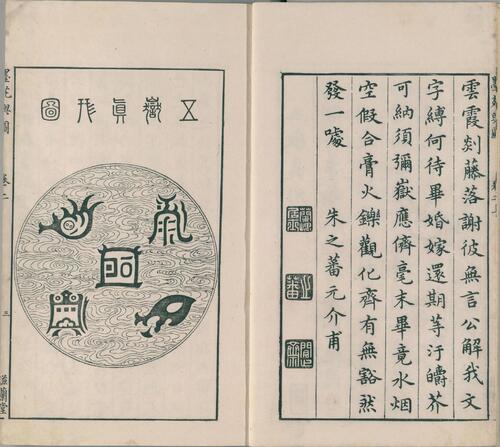 雲霞剡藤落謝彼無言公解我文
字縛何待畢婚嫁還期等汙皭芥
可納須彌嶽應儕毫末畢竟水烟
空假合膏火鑠觀化齊有無豁然
發一噱
朱之蕃元介甫
五嶽眞形圖
墨苑輿圖 卷二 三 滋蘭堂